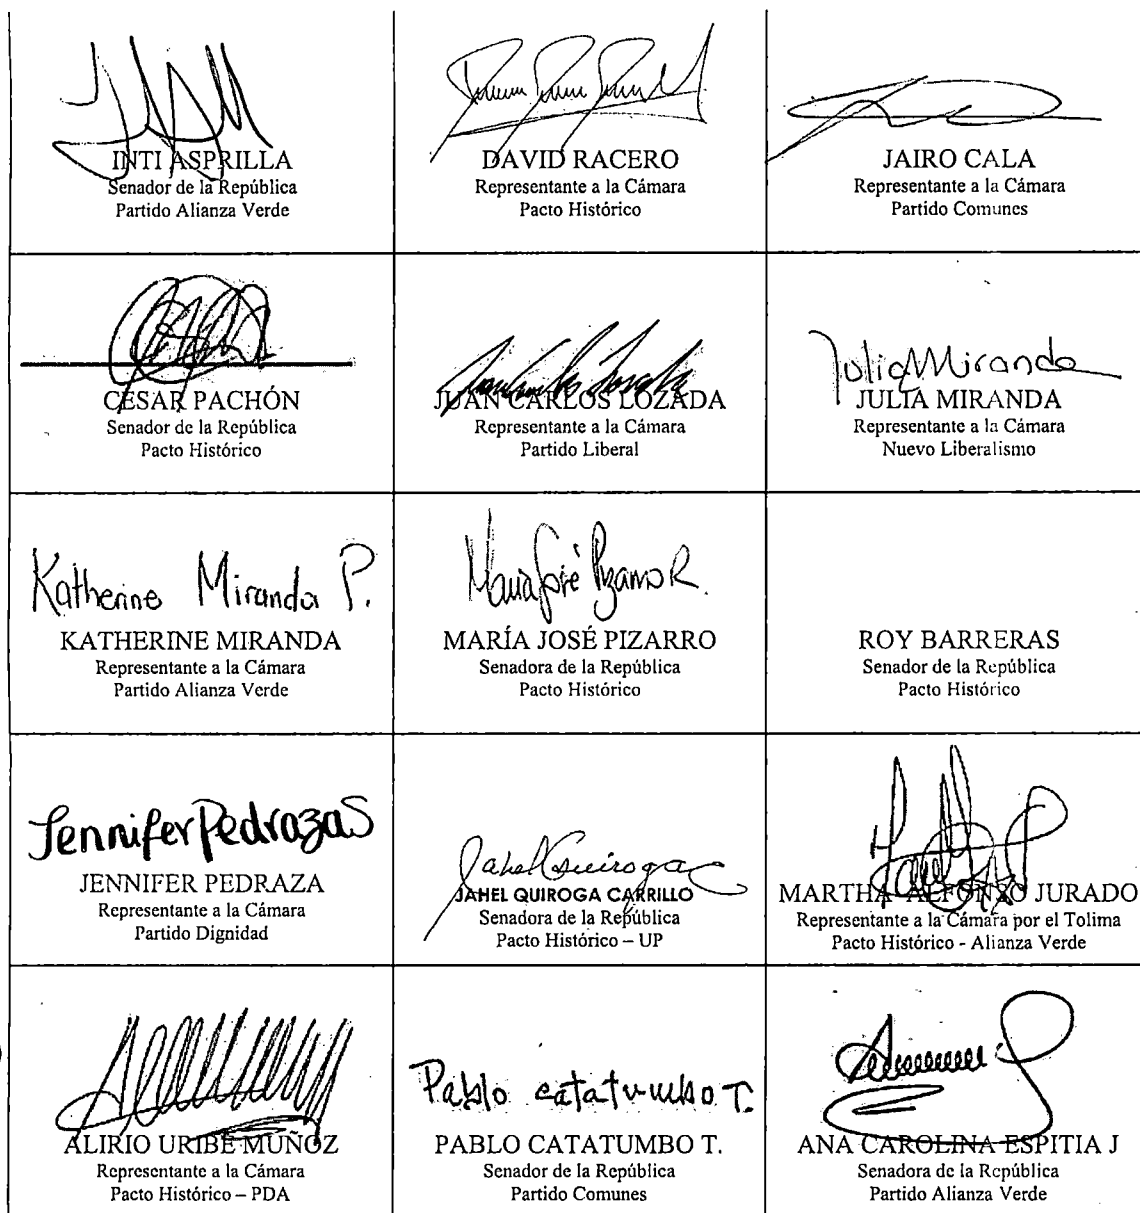 INTI ASPRILLA
Senador de la República
Partido Alianza Verde
DAVID RACERO
Representante a la Cámara
Pacto Histórico
JAIRO CALA
Representante a la Cámara
Partido Comunes
CÉSAR PACHÓN
Senador de la República
Pacto Histórico
JUAN CARLOS LOZADA
Representante a la Cámara
Partido Liberal
Julia Miranda
JULIA MIRANDA
Representante a la Cámara
Nuevo Liberalismo
Katherine Miranda P.
KATHERINE MIRANDA
Representante a la Cámara
Partido Alianza Verde
María José Pizarro R.
MARÍA JOSÉ PIZARRO
Senadora de la República
Pacto Histórico
ROY BARRERAS
Senador de la República
Pacto Histórico
Jennifer Pedraza S
JENNIFER PEDRAZA
Representante a la Cámara
Partido Dignidad
Jahel Quiroga C
JAHEL QUIROGA CARRILLO
Senadora de la República
Pacto Histórico – UP
MARTHA ALFONSO JURADO
Representante a la Cámara por el Tolima
Pacto Histórico - Alianza Verde
ALIRIO URIBE MUÑOZ
Representante a la Cámara
Pacto Histórico – PDA
Pablo Catatumbo T.
PABLO CATATUMBO T.
Senador de la República
Partido Comunes
ANA CAROLINA ESPITIA J
Senadora de la República
Partido Alianza Verde